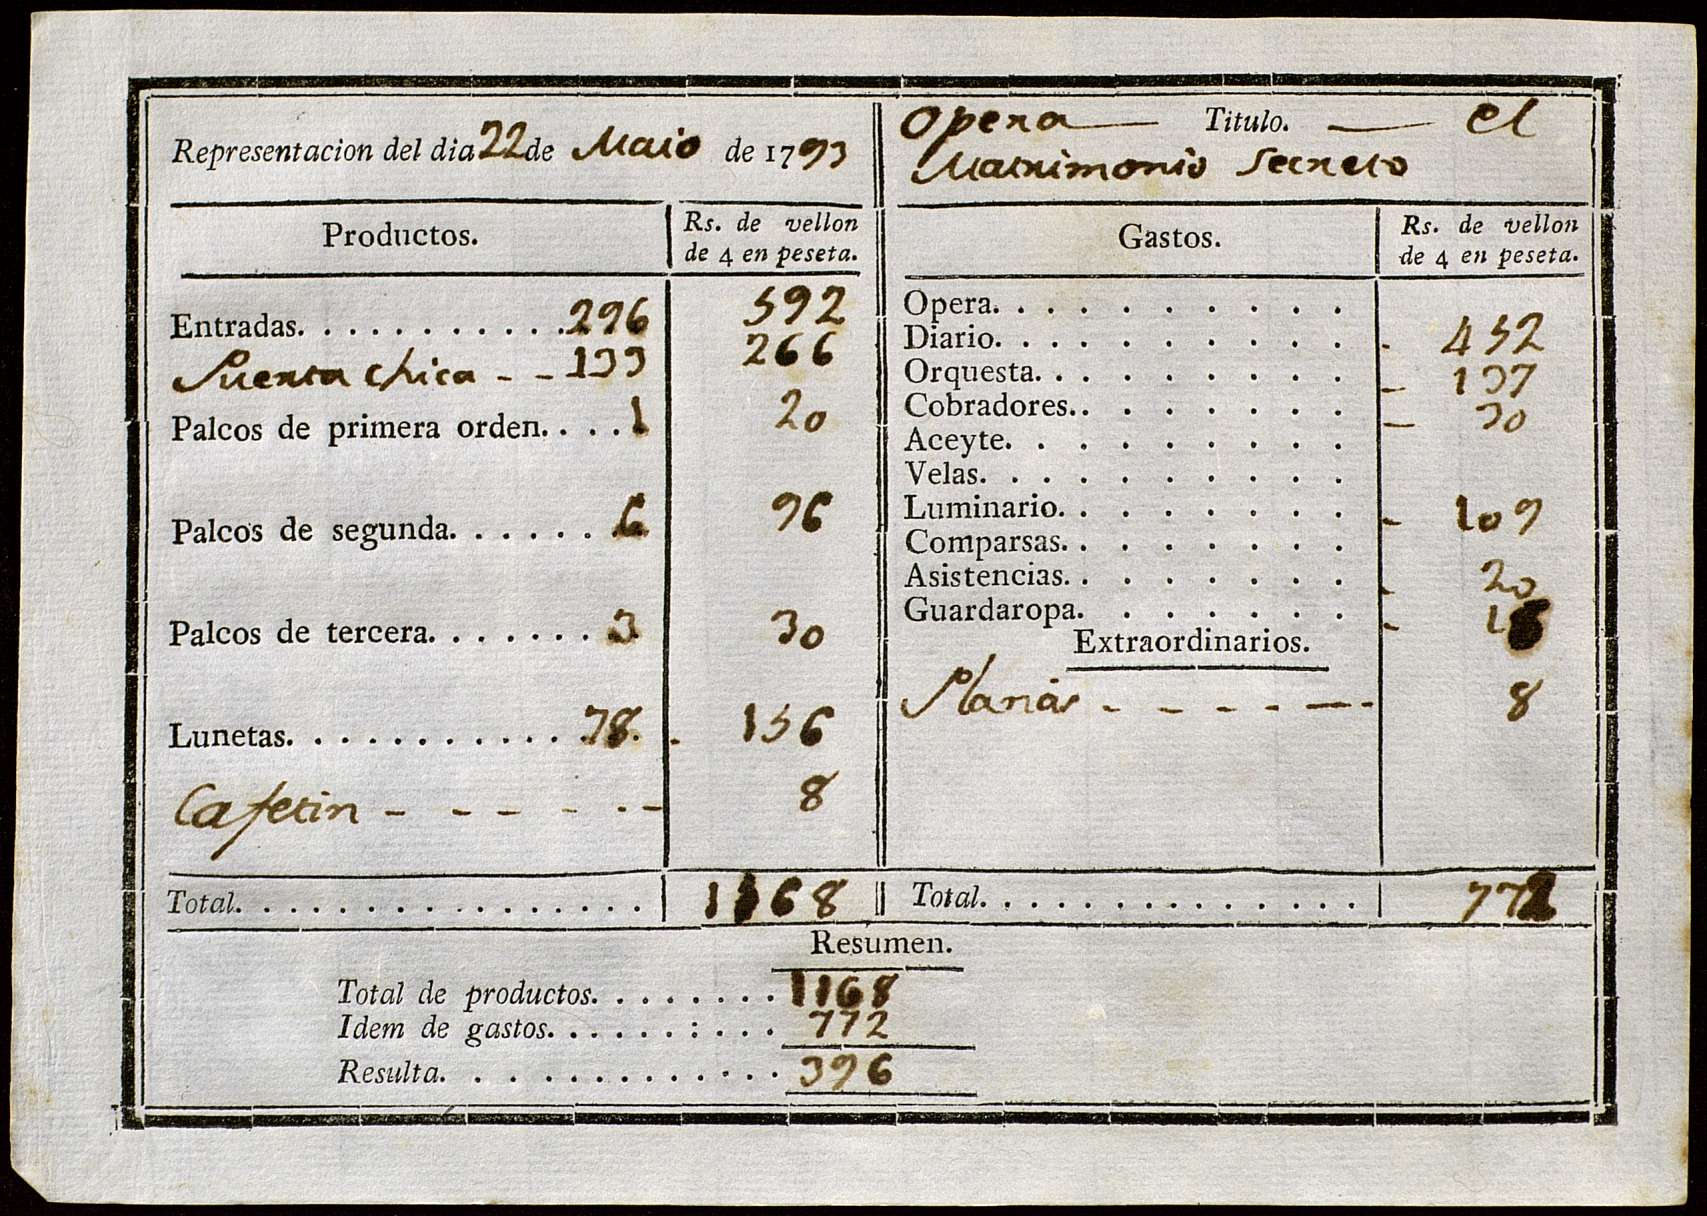 Representacion del dia 22 de Maio de 1793
Opera — Titulo. — el
Matrimonio Secreto
Productos.
Rs. de vellon
de 4 en peseta.
Entradas. . . . . . . . . . . . 296 592
Puerta chica - - 133 266
Palcos de primera orden. . . . 1 20
Palcos de segunda. . . . . . . 6 96
Palcos de tercera. . . . . . . 3 30
Lunetas. . . . . . . . . . . . 78. 156
Cafetin - - - - - - 8
Total. . . . . . . . . . . . . . . . 1168
Gastos.
Rs. de vellon
de 4 en peseta.
Opera. . . . . . . . . .
Diario. . . . . . . . . . 452
Orquesta. . . . . . . . . 137
Cobradores. . . . . . . . 30
Aceyte. . . . . . . . . .
Velas. . . . . . . . . . .
Luminario. . . . . . . . 109
Comparsas. . . . . . . .
Asistencias. . . . . . . . 20
Guardaropa. . . . . . . 16
Extraordinarios.
Planas - - - - - - 8
Total. . . . . . . . . . . . . . . 772
Resumen.
Total de productos. . . . . . . . 1168
Idem de gastos. . . . . . : . . . 772
Resulta. . . . . . . . . . . . . 396